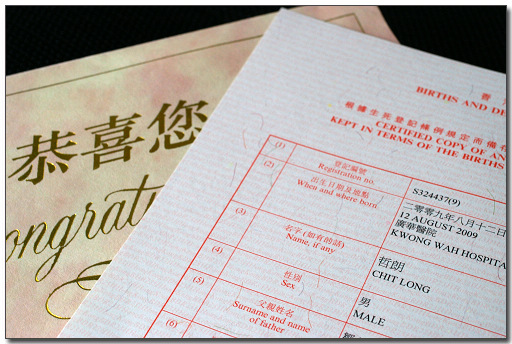 恭喜您
香
BIRTHS AND DE
根據生死登記條例規定而備存
CERTIFIED COPY OF AN
KEPT IN TERMS OF THE BIRTHS
(1)
登記編號
Registration no.
S324437(9)
(2)
出生日期及地點
When and where born
二零零九年八月十二日
12 AUGUST 2009
廣華醫院
KWONG WAH HOSPITA
(3)
名字 (如有的話)
Name, if any
哲朗
CHIT LONG
(4)
性別
Sex
男
MALE
(5)
父親姓名
Surname and name
of father
(6)
ongratu